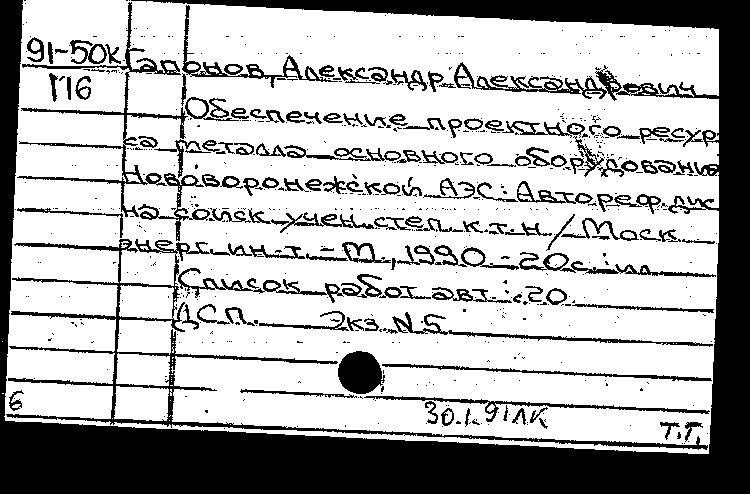 91-50к Гапонов, Александр Александрович
Г16
Обеспечение проектного ресур-
са металла основного оборудования
Нововоронежской АЭС: Автореф. дис
на соиск учен. степ. к.т.н. / Моск
энерг. ин-т. - М., 1990 - 20с.: ил
Список работ авт.: с.20
ДСП. Экз N 5.
6 30.1.91 ЛК Т.Г.